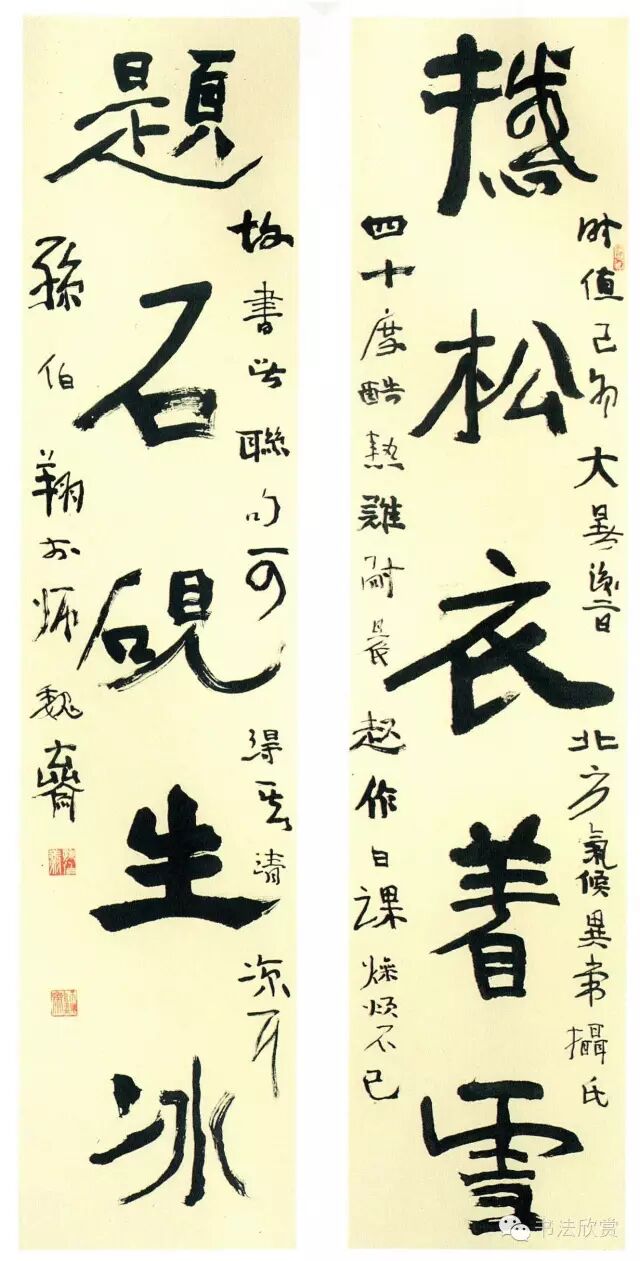 撼松衣着雪
時值己卯大暑後二日北方氣候異常攝氏
四十度酷熱難耐晨起作日課燥煩不已
題石硯生冰
故書此聯句可得其清凉耳
孫伯翔於師魏齋
书法欣赏